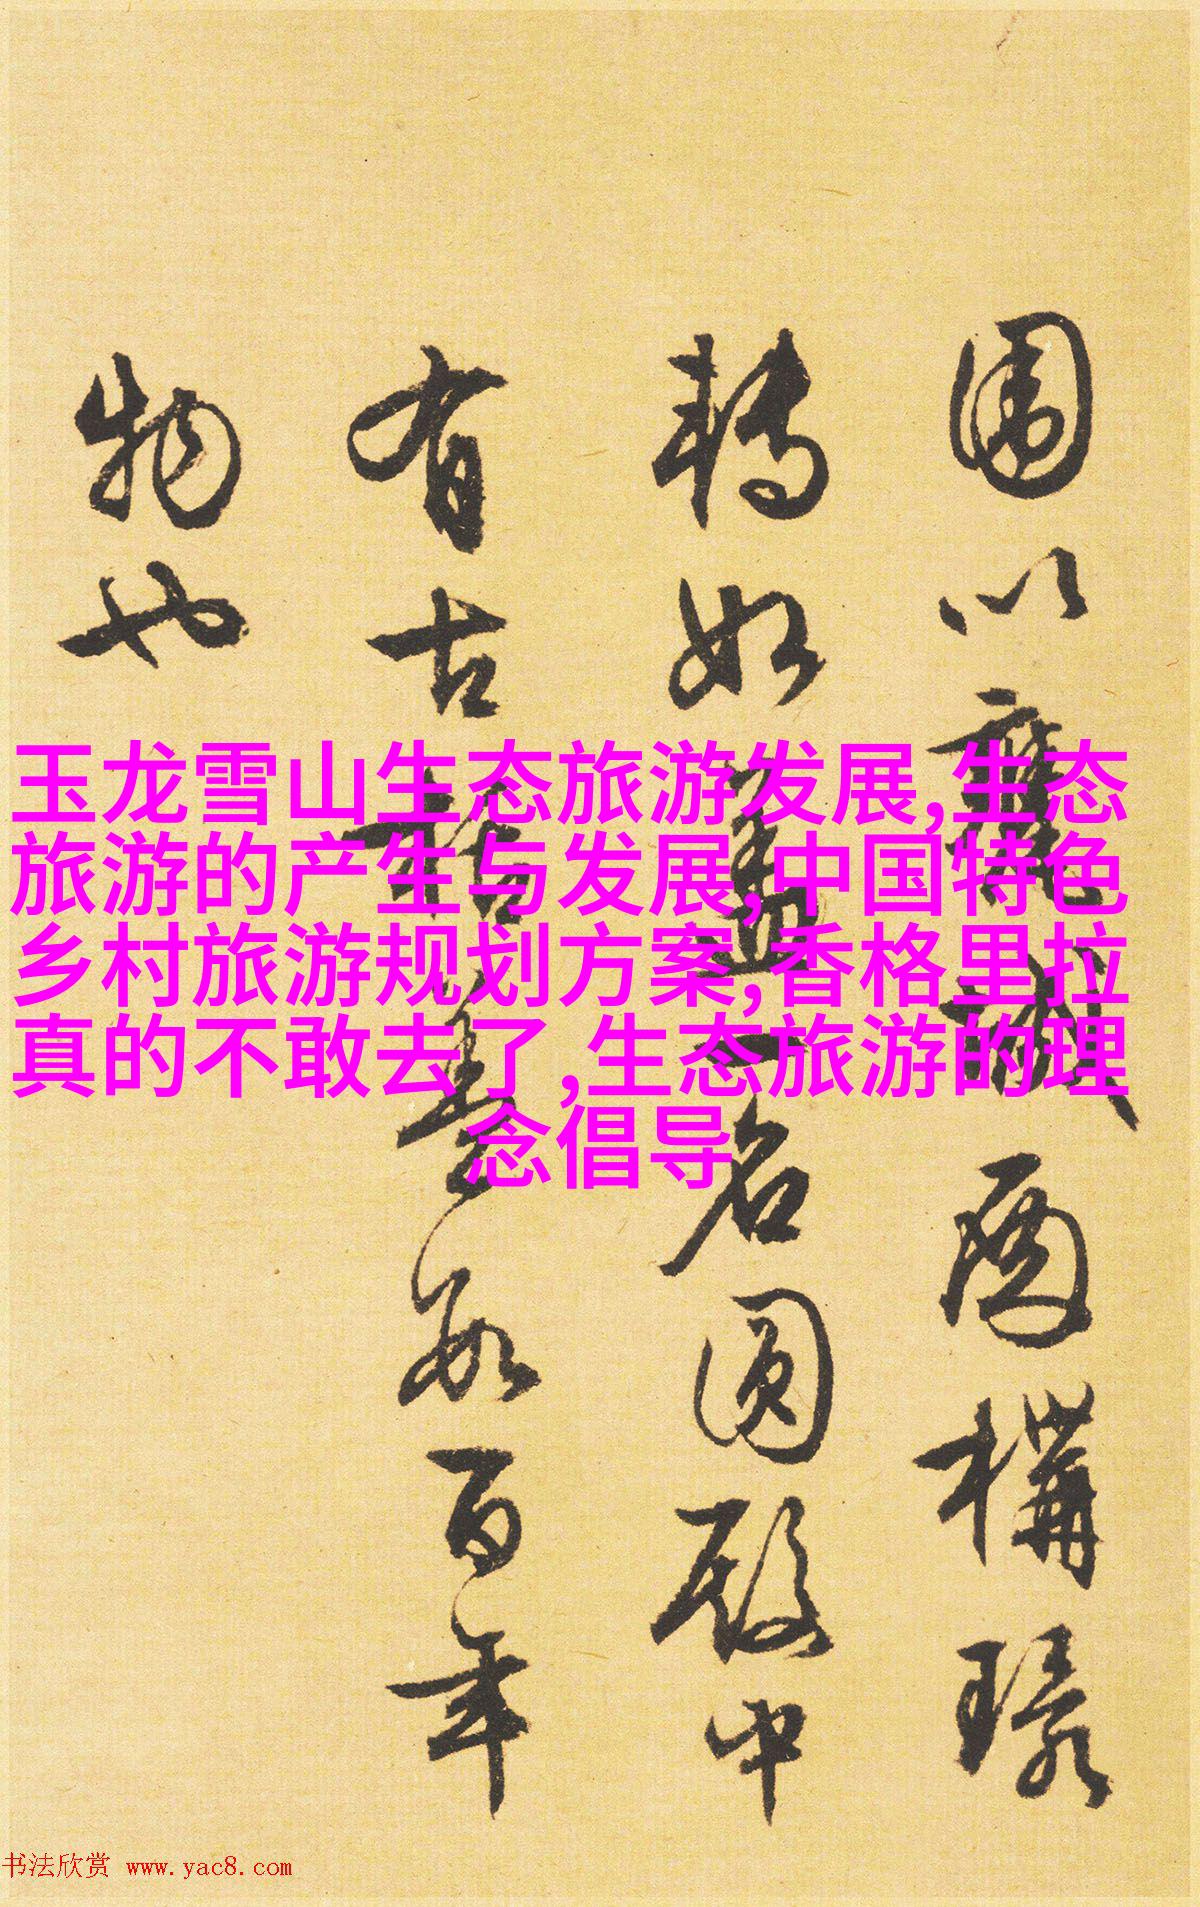 圍以甕城而構環
轉如蓋一名圓殿中
有古栝數百年
物也
玉龙雪山生态旅游发展,生态
旅游的产生与发展,中国特色
乡村旅游规划方案,香格里拉
真的不敢去了,生态旅游的理
念倡导
书法欣赏 www.yac8.com